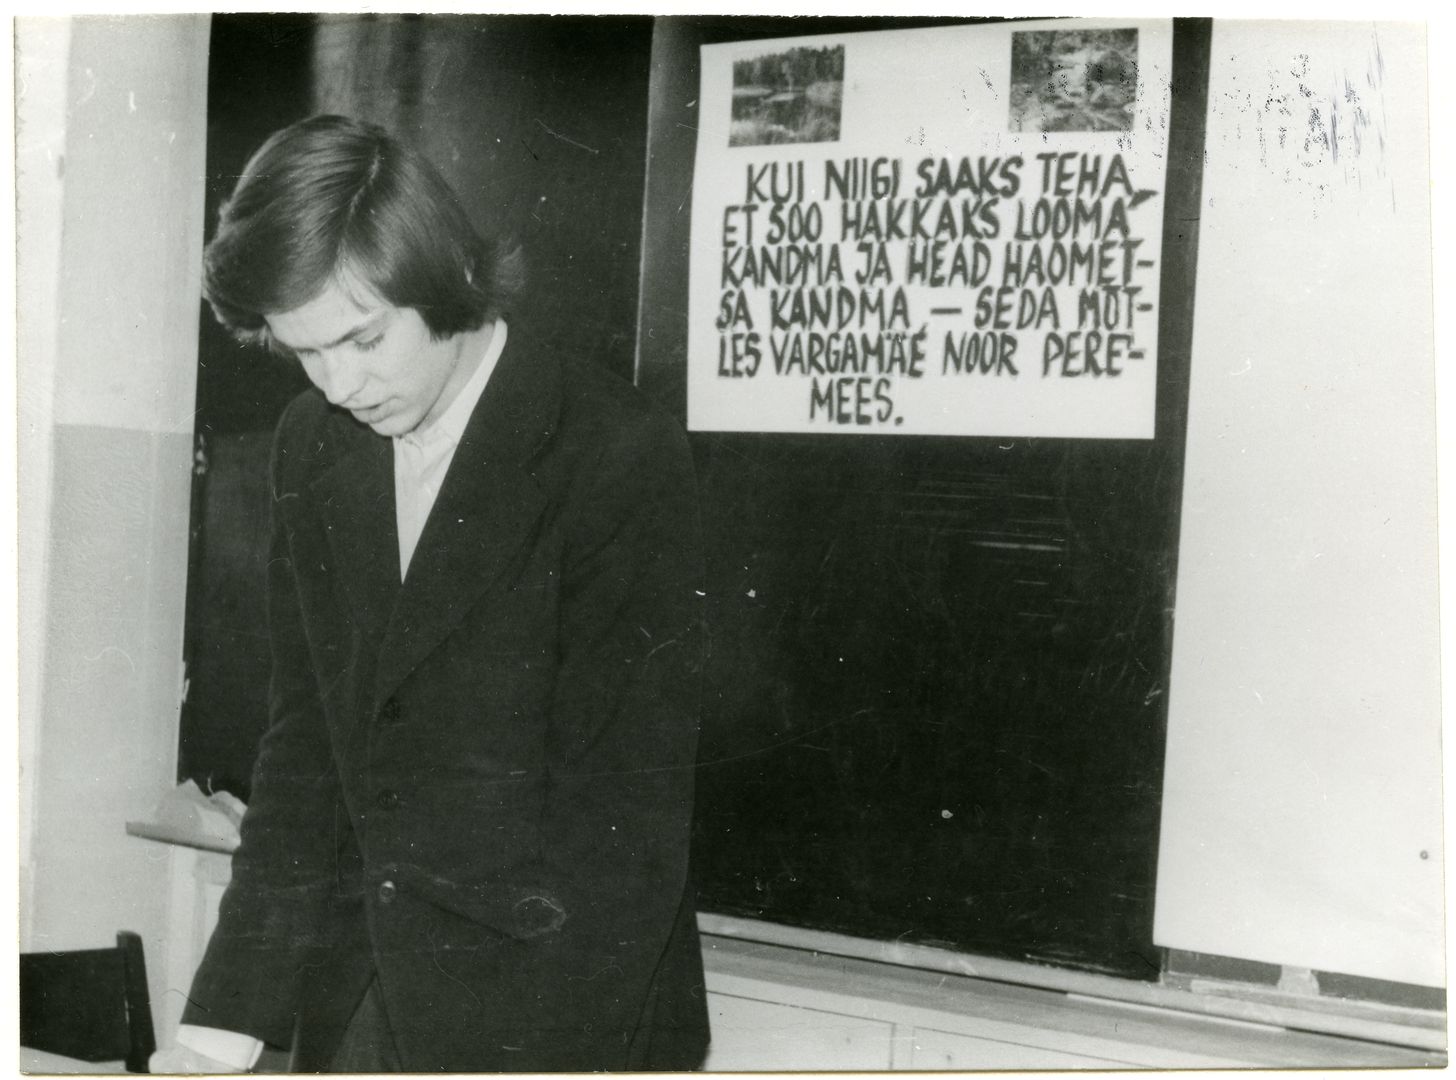 KUI NIIGI SAAKS TEHA,
ET SOO HAKKAKS LOOMA
KANDMA JA HEAD HAOMET-
SA KANDMA — SEDA MÕT-
LES VARGAMÄE NOOR PERE-
MEES.